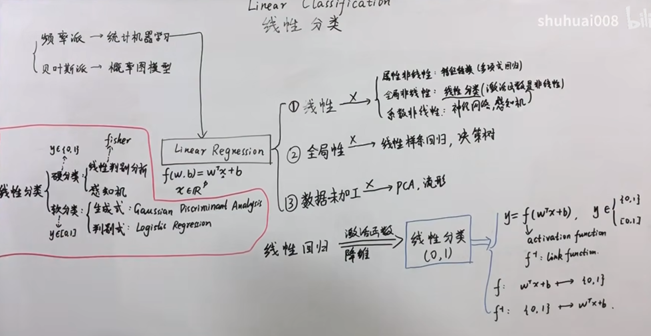 Linear Classification
线性分类
shuhuai008
bili
频率派 → 统计机器学习
贝叶斯派 → 概率图模型
Linear Regression
f(w,b) = wᵀx+b
x∈ℝᵖ
① 线性 X→
属性非线性: 特征转换 (多项式回归)
全局非线性: 线性分类 (激活函数是非线性)
系数非线性: 神经网络, 感知机
② 全局性 X→ 线性样条回归, 决策树
③ 数据未加工 X→ PCA, 流形
线性分类
y∈{0,1}
fisher
硬分类
线性判别分析
感知机
软分类
y∈[0,1]
生成式: Gaussian Discriminant Analysis
判别式: Logistic Regression
线性回归 激活函数 降维 线性分类 (0,1)
y = f(wᵀx+b), y∈ {0,1} [0,1]
activation function
f⁻¹: link function
f: wᵀx+b ↦ {0,1}
f⁻¹: {0,1} ↦ wᵀx+b